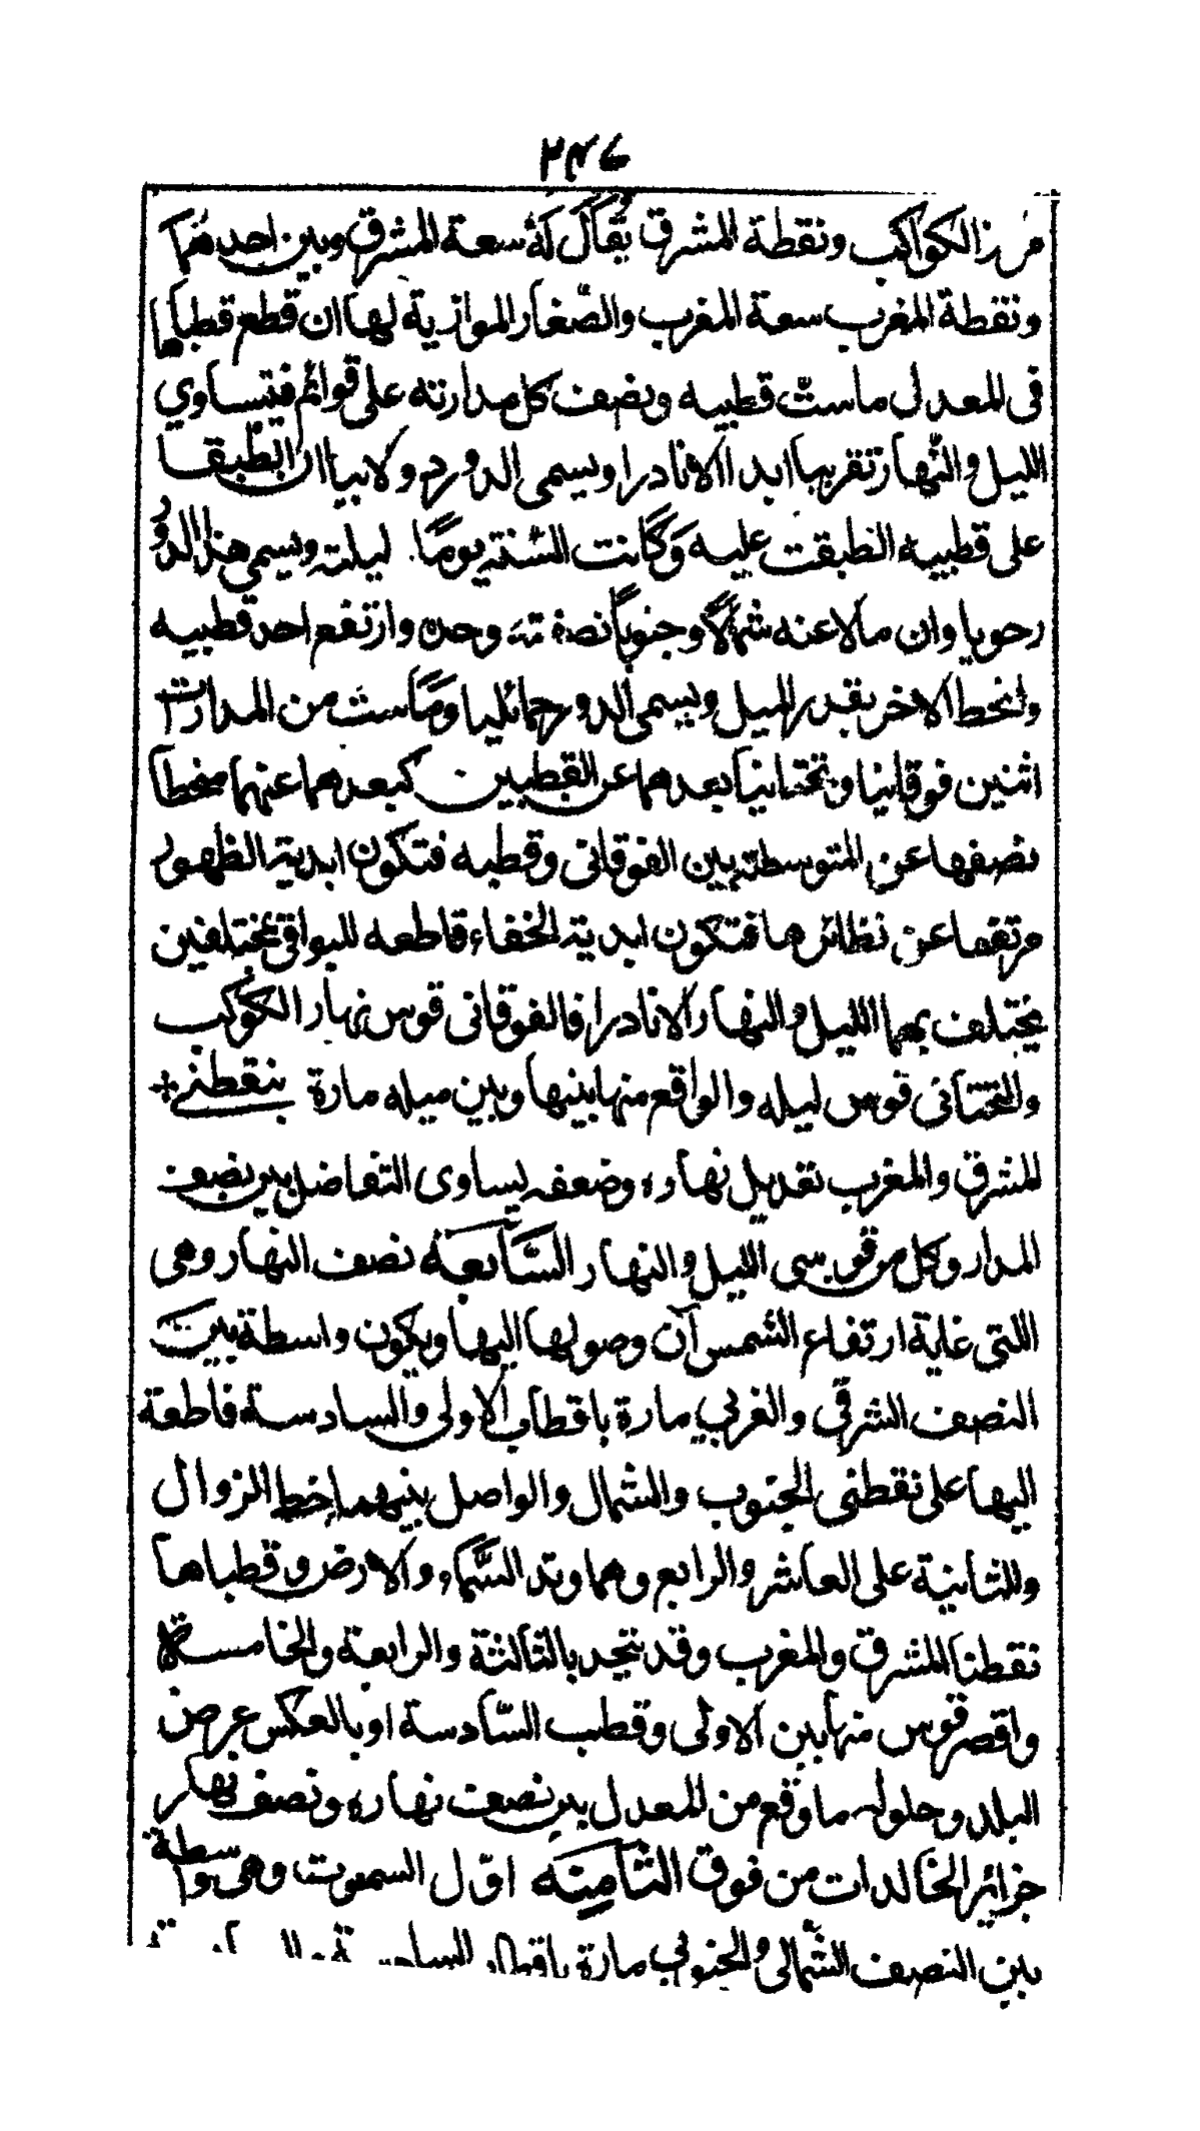 ٢٤٦
من الكواكب ونقطة المشرق يُقال له سعة المشرق وبين احدهما
ونقطة المغرب سعة المغرب والصّغار الموازية لها ان قطع قطباها
فى المعدل ماست قطبيه ونصف كل مداراته على قوائم فيتساوي
الليل والنّهار تقريبا ابدا الا نادرا ويسمى الدور دولابيا ان انطبقا
على قطبيه انطبقت عليه وكانت السّنة يومًا ليلته ويسمى هذا الدّور
رحويا وان مالا عنه شمالًا وجنوبًا نصفته وحده وارتفع احد قطبيه
وانحط الاخر بقدر الميل ويسمى الدور حمائليا وماست من المدارات
اثنين فوقانيا وتحتانيا بعدهما عن القطبين كبعدهما عنهما منحطا
نصفها عن المتوسطة بين الفوقانى وقطبه فتكون ابدية الظهور
مرتفعا عن نظائرها فتكون ابدية الخفاء قاطعه للبواقى بمختلفين
يختلف بهما الليل والنهار الا نادرا فالفوقانى قوس نهار الكوكب
والتحتانى قوس ليله والواقع منها بينها وبين ميله مارة بنقطتى
المشرق والمغرب تعديل نهاره وضعفه يساوى التفاضل بين نصف
المدار وكل من قوسى الليل والنهار السّابعة نصف النهار وهى
اللتى غاية ارتفاع الشمس آن وصولها اليها ويكون واسطة بين
النصف الشرقى والغربي مارة باقطاب الاولى والسادسة قاطعة
اليها على نقطتى الجنوب والشمال والواصل بينهما خط الزوال
وللثانية على العاشر والرابع وهما وتد السّماء والارض وقطباها
نقطتا المشرق والمغرب وقد تتحد بالثالثة والرابعة والخامسة
واقصر قوس منها بين الاولى وقطب السّادسة او بالعكس عرض
البلد وطوله ما وقع من المعدل بين نصف نهاره ونصف نهار
جزائر الخالدات من فوق الثامنه اوّل السموت وهى واسطة
بين النصف الشّمالى والجنوبي مارة باقطاب